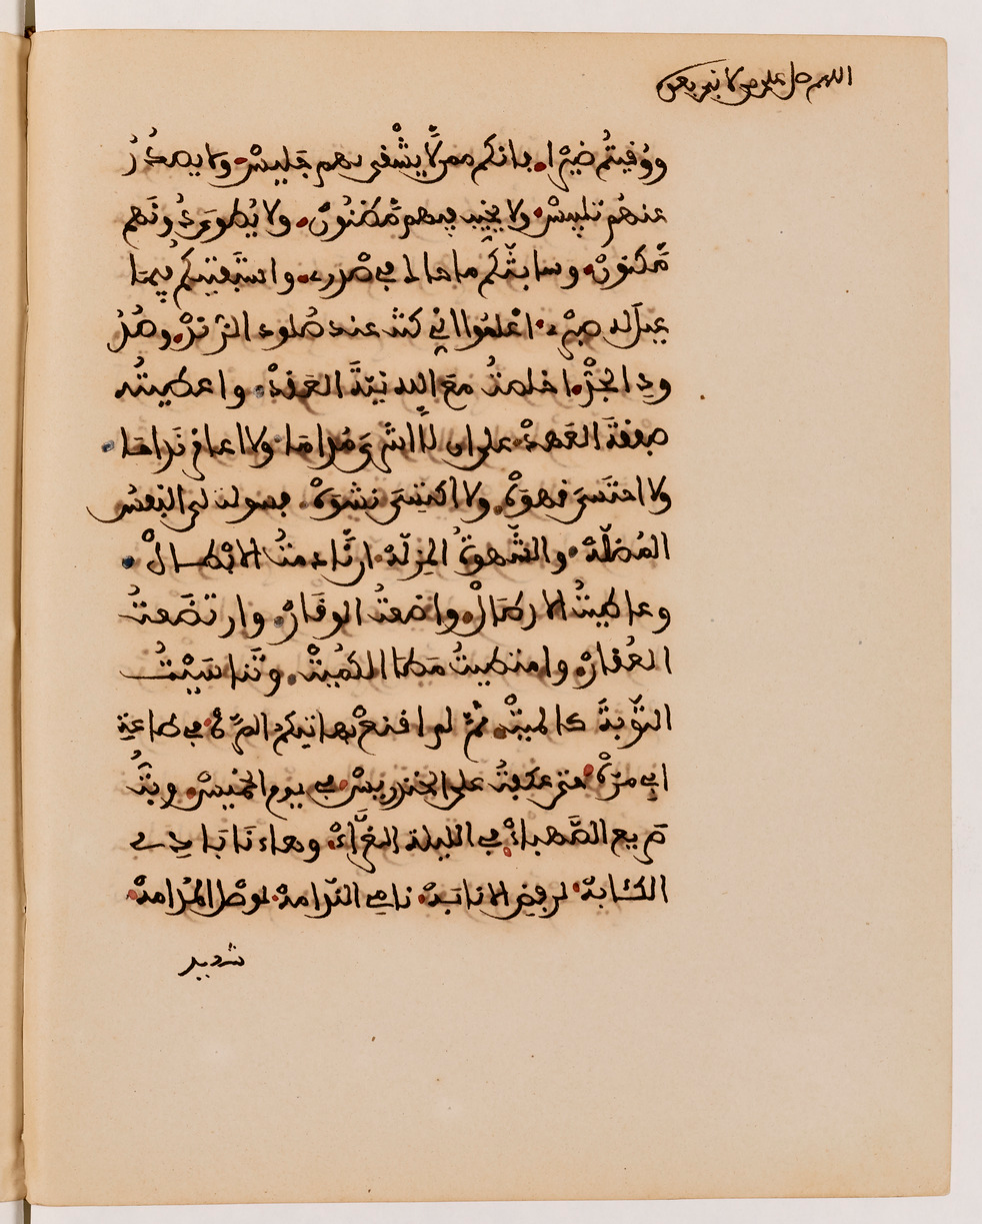 اللهم صل على من لا نبي بعده
ووُقيتُم ضَيْرًا. فإنكم ممن لَّا يشْقى بهم جَليسْ. ولا يصدُرُ
عنهُم تلبِيسْ. ولا يخيب فيهم مَّظْنُونْ. ولا يُطوى دُونَهم
مَّكنونْ. وسأبثّكم ما حاك في صدرى. واستَفتيكم فِيمَا
عيل له صبْرى. اعْلَمُوا انِّي كنتُ عند صُلود الزّندْ. وصُدُ
ودِ الجَدّْ. اخلصتُ معَ الله نيّةَ العَقدْ. واعطيتُه
صفقةَ العَهدْ. على ان لَّا اسْبَى مُدامًا. ولا اعاقر نَدامَا
ولا احتَسى قهوَةْ. ولا اكتسِى نشوَةْ. فسولت لى النفسُ
المُضلّةْ. والشّهوةُ المزِلّةْ. ان نَّادمتُ الابْطالْ.
وعاطيتُ الارطَالْ. واضعتُ الوقَارْ. وارتضَعتُ
العُقارْ. وامتطيتُ مَطا الكُمَيْتْ. وتَناسَيْتُ
التّوْبةَ كالمَيْتْ. ثمّ لم اقنعْ بهاتيكم المرّةْ. في طاعةِ
ابِي مرّةْ. حتى عكفتُ على الخندريسْ. في يوم الخميسْ. وبتُّ
صَريع الصَّهباءْ. في الليلة الغرَّاءْ. وهاءنَا بَادِى
الكئابةْ. لرفض الانابَةْ. نامي النّدامةْ. لوصْل المُدامةْ.
شديد